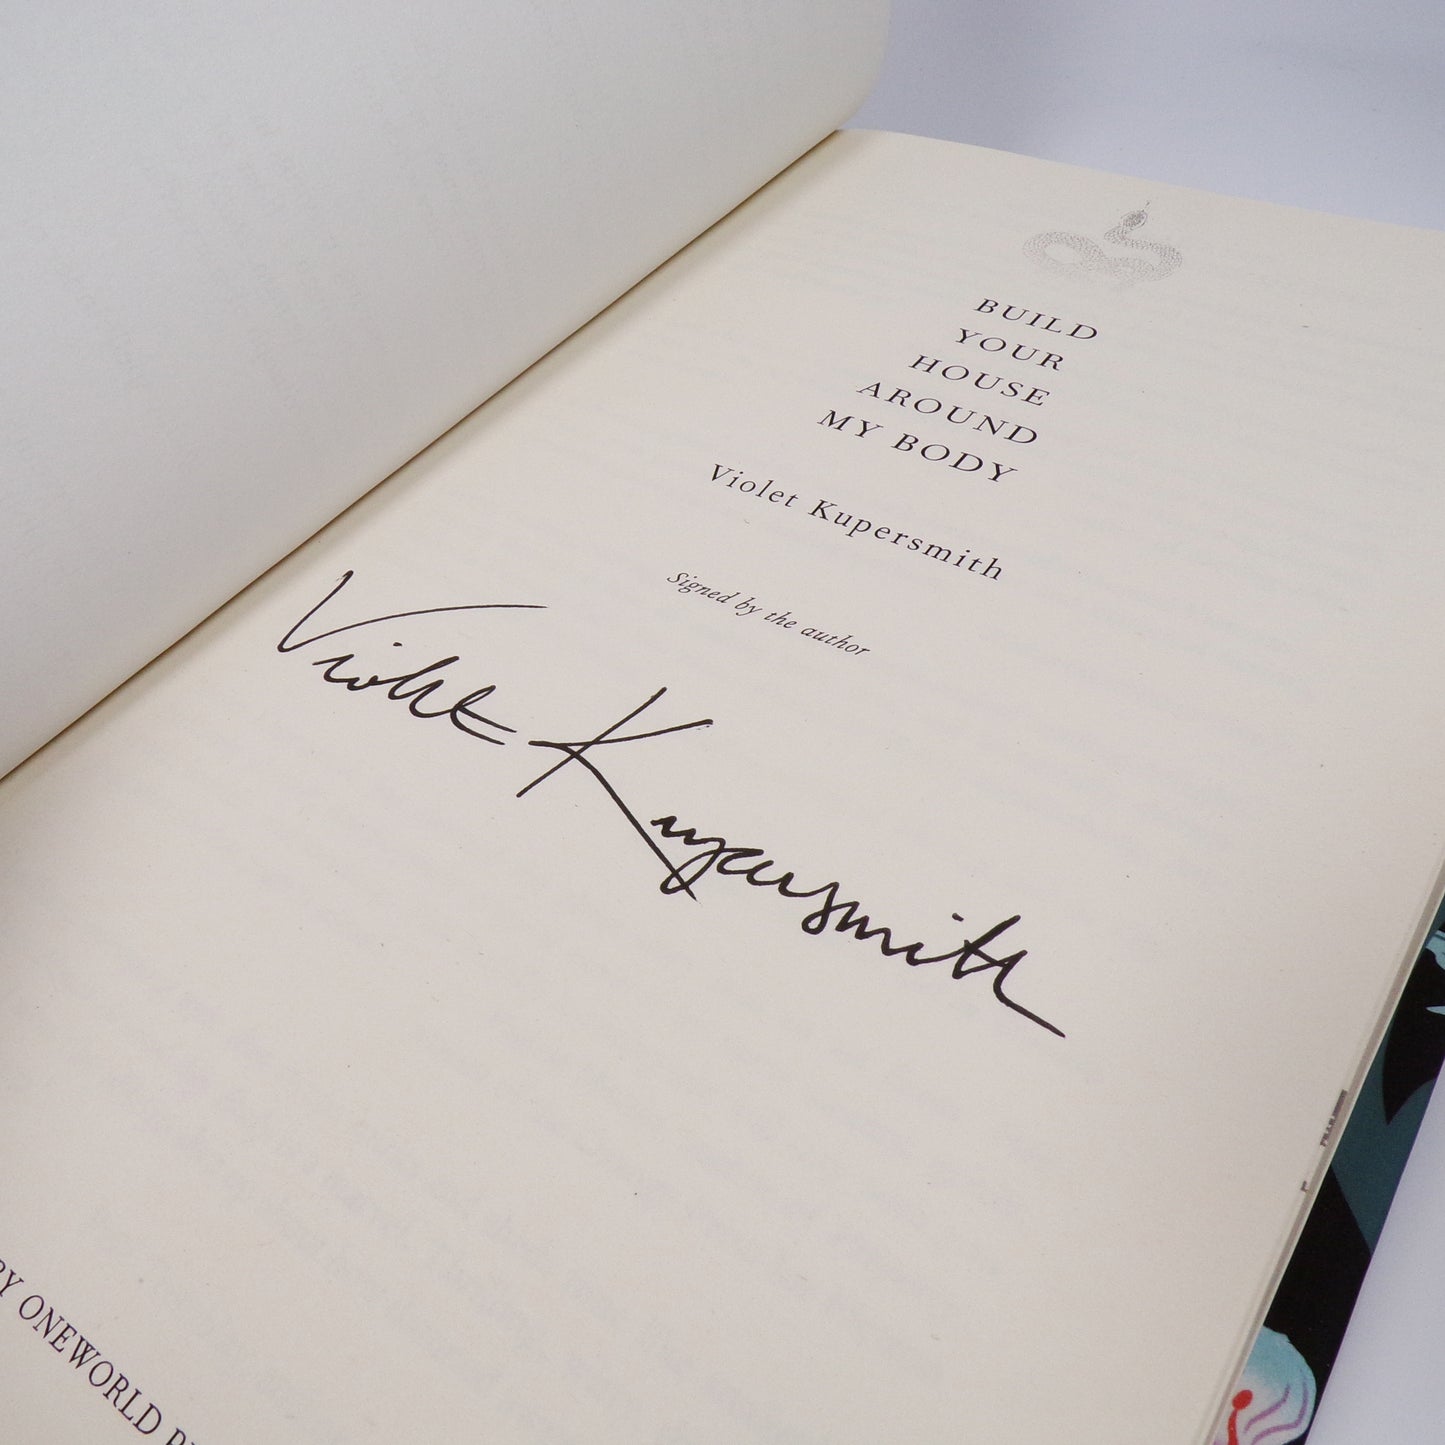 BUILD
YOUR
HOUSE
AROUND
MY BODY
Violet Kupersmith
Signed by the author
Violet Kupersmith
ONEWORLD